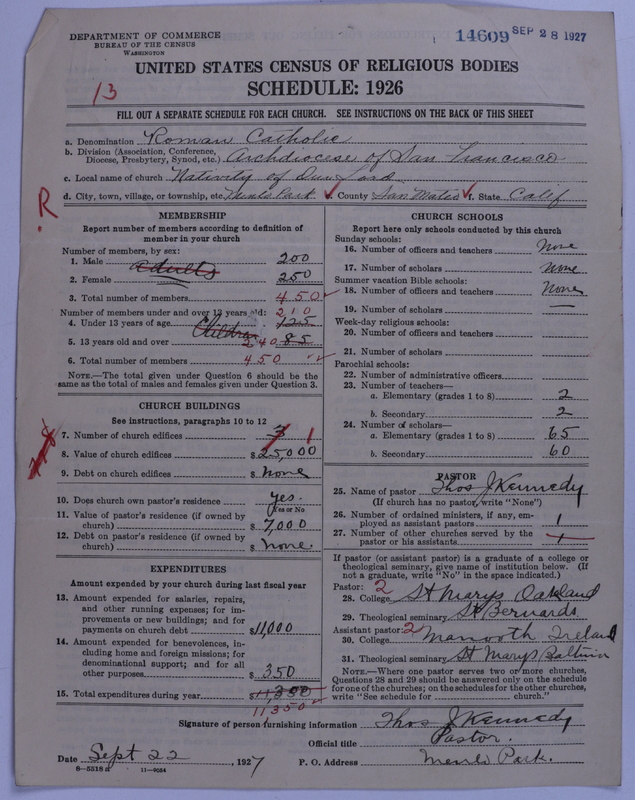 DEPARTMENT OF COMMERCE
BUREAU OF THE CENSUS
WASHINGTON
14609 SEP 28 1927
UNITED STATES CENSUS OF RELIGIOUS BODIES
SCHEDULE: 1926
13
FILL OUT A SEPARATE SCHEDULE FOR EACH CHURCH. SEE INSTRUCTIONS ON THE BACK OF THIS SHEET
a. Denomination Roman Catholic
b. Division (Association, Conference, Diocese, Presbytery, Synod, etc.) Archdiocese of San Francisco
c. Local name of church Nativity of Our Lord
d. City, town, village, or township, etc. Menlo Park e. County San Mateo f. State Calif
R
MEMBERSHIP
Report number of members according to definition of
member in your church
Number of members, by sex:
1. Male 200
adults
2. Female 250
3. Total number of members 450
Number of members under and over 13 years old: 210
4. Under 13 years of age 125
Children
5. 13 years old and over 240 85
6. Total number of members 450
NOTE.—The total given under Question 6 should be
same as the total of males and females given under Question 3.
CHURCH BUILDINGS
See instructions, paragraphs 10 to 12
7. Number of church edifices 3 1
8. Value of church edifices $25,000
9. Debt on church edifices $ none
10. Does church own pastor's residence yes.
Yes or No
11. Value of pastor's residence (if owned by
church) $ 7,000
12. Debt on pastor's residence (if owned by
church) $ none.
EXPENDITURES
Amount expended by your church during last fiscal year
13. Amount expended for salaries, repairs,
and other running expenses; for im-
provements or new buildings; and for
payments on church debt $11,000
14. Amount expended for benevolences, in-
cluding home and foreign missions; for
denominational support; and for all
other purposes $ 350
15. Total expenditures during year $11,350
11350
CHURCH SCHOOLS
Report here only schools conducted by this church
Sunday schools:
16. Number of officers and teachers None
17. Number of scholars None
Summer vacation Bible schools:
18. Number of officers and teachers None
19. Number of scholars
Week-day religious schools:
20. Number of officers and teachers
21. Number of scholars
Parochial schools:
22. Number of administrative officers
23. Number of teachers—
a. Elementary (grades 1 to 8) 2
b. Secondary 2
24. Number of scholars—
a. Elementary (grades 1 to 8) 65
b. Secondary 60
PASTOR
25. Name of pastor Thos J Kennedy
(If church has no pastor, write "None")
26. Number of ordained ministers, if any, em-
ployed as assistant pastors 1
27. Number of other churches served by the
pastor or his assistants 1
If pastor (or assistant pastor) is a graduate of a college or
theological seminary, give name of institution below. (If
not a graduate, write "No" in the space indicated.)
Pastor: 2
28. College St Marys Oakland
29. Theological seminary St Bernards
Assistant pastor: 2
30. College Manooth Ireland
31. Theological seminary St Marys
NOTE.—Where one pastor serves two or more churches,
Questions 28 and 29 should be answered only on the schedule
for one of the churches; on the schedules for the other churches,
write "See schedule for church."
Signature of person furnishing information Thos J Kennedy
Official title Pastor.
Date Sept 22, 1927 P. O. Address Menlo Park.
8—5518 a 11—9664